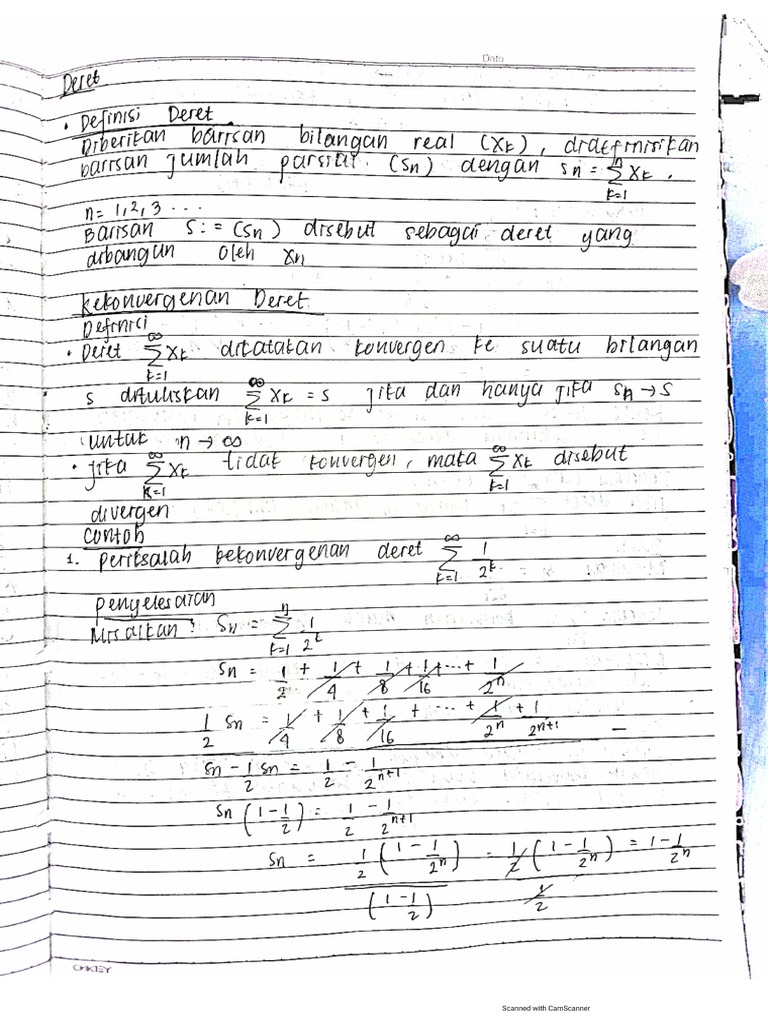 Date
Deret
• Definisi Deret
Diberikan barisan bilangan real (Xk), didefinisikan
barisan jumlah parsial (Sn) dengan Sn = ∑_{k=1}^{n} Xk.
n = 1, 2, 3 ...
Barisan S := (Sn) disebut sebagai deret yang
dibangun oleh Xn
Kekonvergenan Deret
Definisi
• Deret ∑_{k=1}^{∞} Xk dikatakan konvergen ke suatu bilangan
S dituliskan ∑_{k=1}^{∞} Xk = S jika dan hanya jika Sn → S
untuk n → ∞
• Jika ∑_{k=1}^{∞} Xk tidak konvergen, maka ∑_{k=1}^{∞} Xk disebut
divergen
Contoh
1. Periksalah kekonvergenan deret ∑_{k=1}^{∞} 1/2^k.
Penyelesaian
Misalkan : Sn = ∑_{k=1}^{n} 1/2^k
Sn = 1/2 + 1/4 + 1/8 + 1/16 + ... + 1/2^n
1/2 Sn = 1/4 + 1/8 + 1/16 + ... + 1/2^n + 1/2^{n+1} −
Sn − 1/2 Sn = 1/2 − 1/2^{n+1}
Sn (1 − 1/2) = 1/2 − 1/2^{n+1}
Sn = 1/2 (1 − 1/2^n) / (1 − 1/2) = 1/2 (1 − 1/2^n) / 1/2 = 1 − 1/2^n
OAKLEY
Scanned with CamScanner